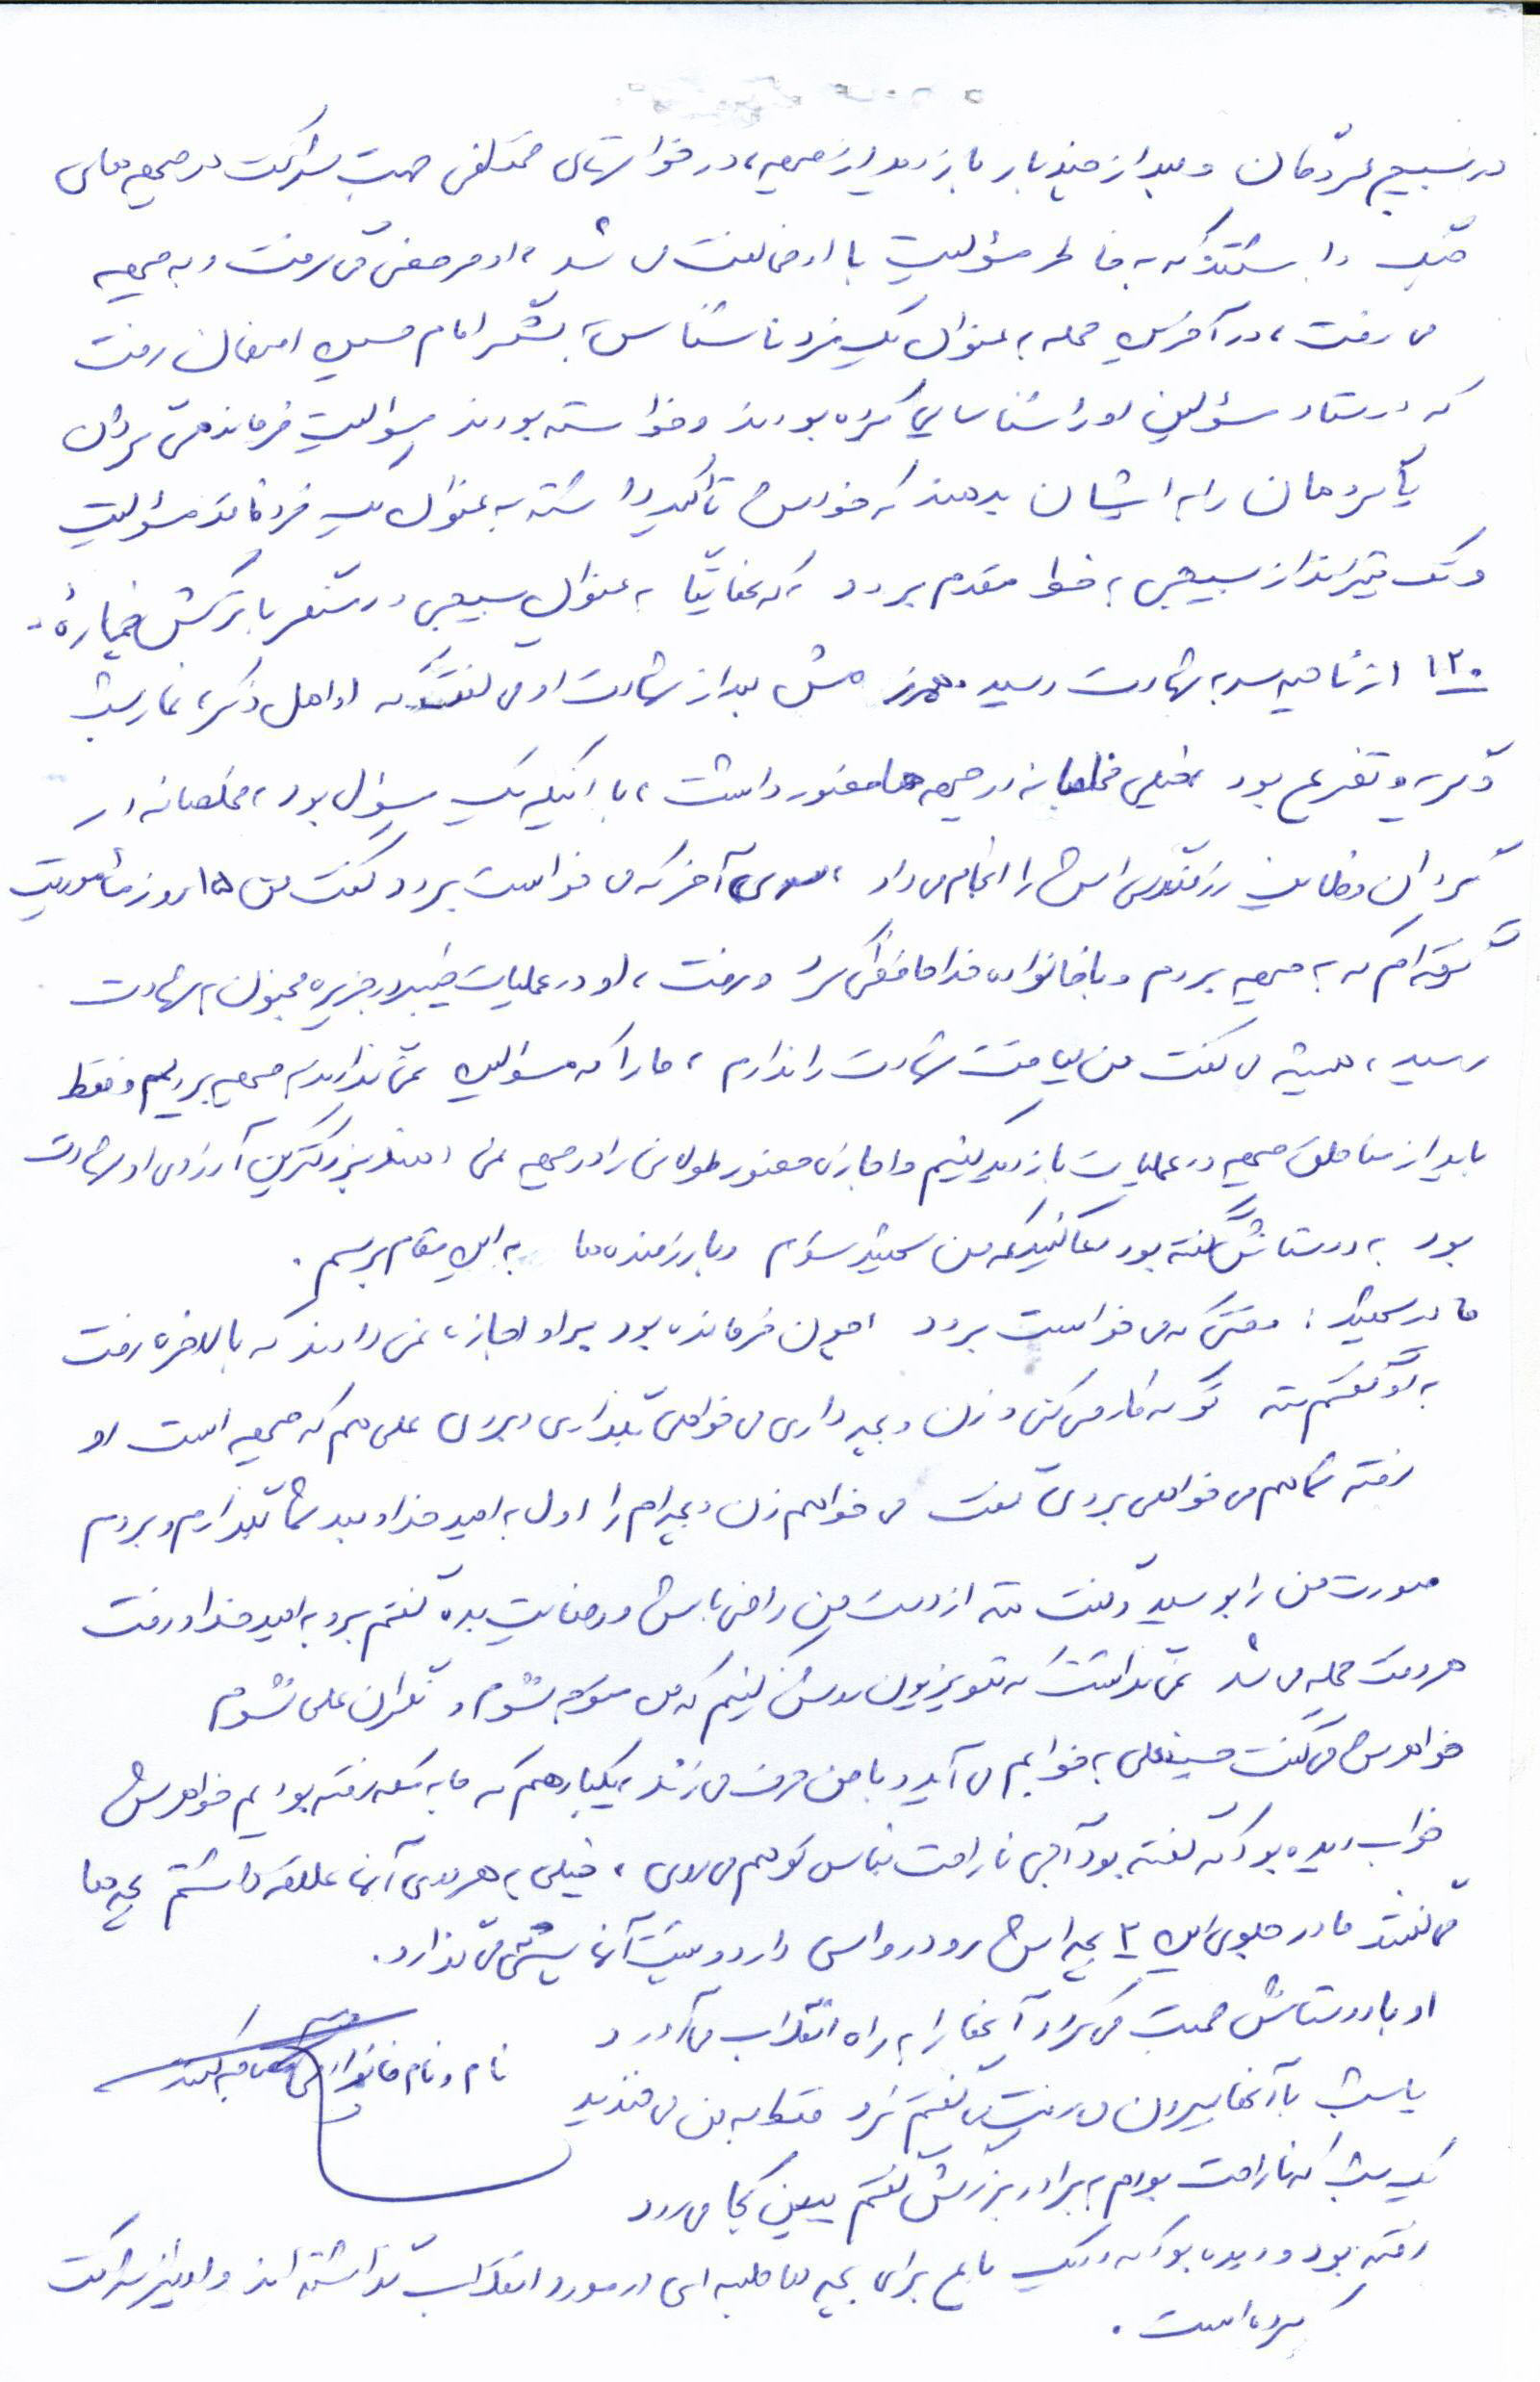 در بسیج عزدتمان و بعد از چند بار بازدید از جبهه، درخواستهای مختلفی جهت شرکت در جبهه های
جنگ داشتند که به خاطر مسؤلیت با او مخالفت می شد، او مرخصی می گرفت و به جبهه
می رفت، در آخرین حمله به عنوان یک فرد ناشناس به لشکر امام حسین اصفهان رفت
که در ستاد مسؤلین او را شناسایی کرده بودند و خواسته بودند مسؤلیت فرماندهی گردان
یا گروهان را به ایشان بدهند که خودش تأکید داشته به عنوان یک فرد فاقد مسؤلیت
و تک تیرانداز بسیجی به خط مقدم برود که نهایتاً به عنوان بسیجی در سنگر با ترکش خمپارهٔ
۱۲۰ از ناحیه سر به شهادت رسید همرزمش بعد از شهادت او می گفت که او اهل ذکر، نماز شب
و گریه و تضرع بود، خیلی مخلصانه در جبهه ها حضور داشت، با اینکه یک مسؤل بود، مخلصانه در
گردان وظایف رزمندگی اش را انجام می داد، سری آخر که می خواست برود گفت من ۱۵ روز مأموریت
گرفته ام که به جبهه بروم و با خانواده خداحافظی کرد و رفت، او در عملیات خیبر در جزیره مجنون به شهادت
رسید، همیشه می گفت من لیاقت شهادت را ندارم، ما را که مسؤلین نمی گذارند به جبهه برویم و فقط
باید از مناطق جبهه در عملیات بازدید کنیم و اجازه حضور طولانی را در جبهه نمی دهند بزرگترین آرزوی او شهادت
بود به دوستانش گفته بود دعا کنید که من شهید شوم و با رزمنده ها به این مقام برسم.
مادر شهید: وقتی که می خواست برود چون فرمانده بود به او اجازه نمی دادند که بالاخره رفت
به او گفتم ننه تو که کار می کنی و زن و بچه داری می خواهی بگذاری و بروی علی هم که جبهه است او
رفته شما هم می خواهی بروی گفت می خواهم زن و بچه ام را اول به امید خدا و بعد شما بگذارم و بروم
صورت من را بوسید و گفت ننه از دست من راضی باش و رضایت بده گفتم برو به امید خدا و رفت
هر وقت حمله می شد نمی گذاشتند که تلویزیون روشن کنیم که من متوجه نشوم و نگران علی نشوم
خواهرش می گفت حسینعلی به خوابم می آید و با من حرف می زند یکبار هم که ما به مکه رفته بودیم خواهرش
خواب دیده بود که گفته بود آبجی ناراحت نباش تو هم می روی، خیلی به هر دوی آنها علاقه داشتم بچه ها
می گفتند مادر جلوی این ۲ بچه اش رودرواسی دارد و پیش آنها پیشتی می گذارد.
او با دوستانش صحبت می کرد و آنها را به راه انقلاب می آورد
نام و نام خانوادگی مصاحبه کننده
یا شب با آنها بیرون می رفت می گفتم نرو فقط به من می خندید
یک شب که ناراحت بودم به برادر بزرگش گفتم ببین کجا می رود
رفته بود و دیده بود که در یک باغ برای بچه ها جلسه ای در مورد انقلاب گذاشته اند و او نیز شرکت
کرده است.